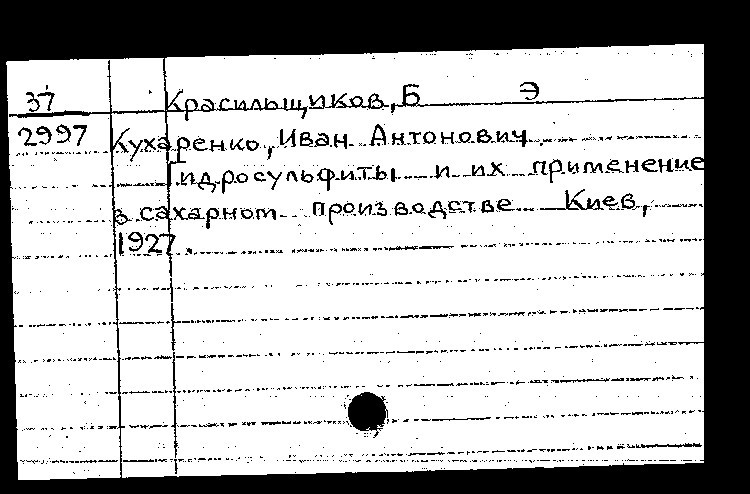 37 Красильщиков, Б Э
2997 Кухаренко, Иван Антонович
Гидросульфиты и их применение
в сахарном производстве Киев,
1927.